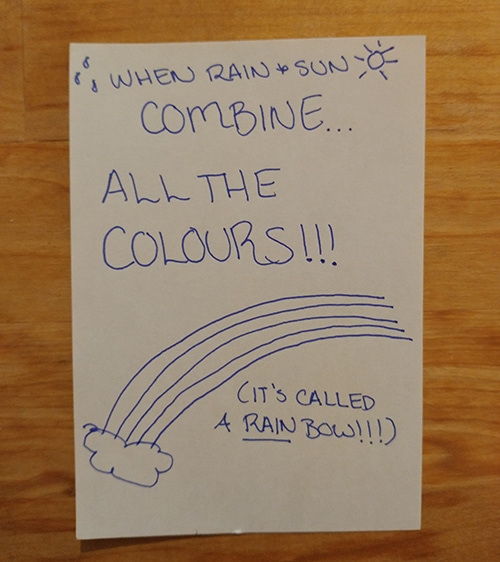 WHEN RAIN & SUN
COMBINE...
ALL THE
COLOURS!!!
(IT'S CALLED
A RAINBOW!!!)